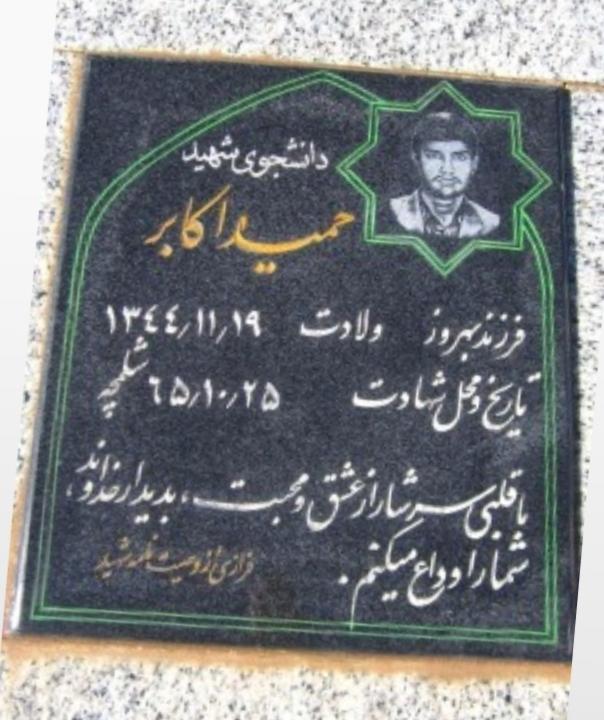 دانشجوی شهید
حمید اکابر
فرزند بهروز ولادت ۱۳٤٤/۱۱/۱۹
تاریخ و محل شهادت ٦۵/۱۰/۲۵ شلمچه
با قلبی سرشار از عشق و محبت، بدیدار خداوند،
شما را وداع میکنم.
فرازی از وصیت نامه شهید